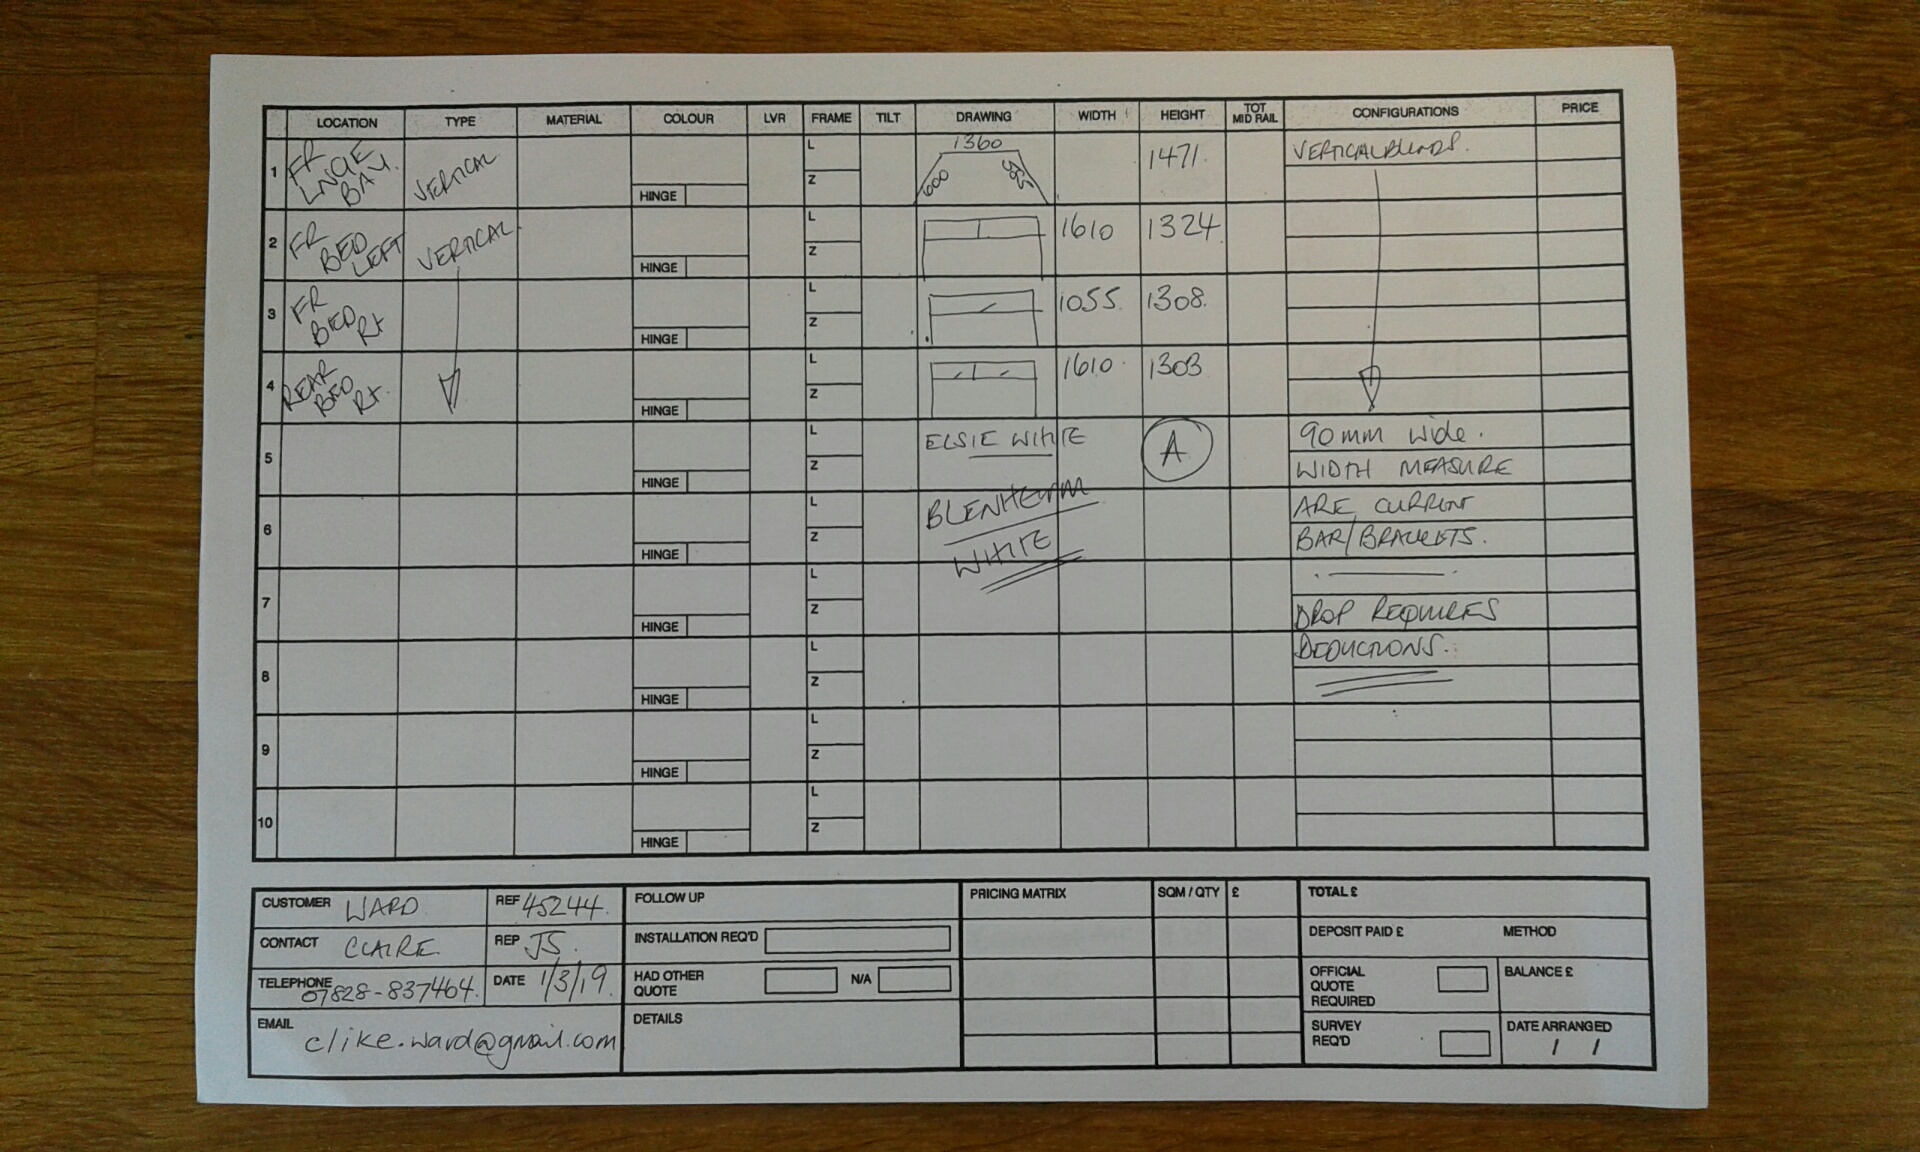 LOCATION TYPE MATERIAL COLOUR LVR FRAME TILT DRAWING WIDTH HEIGHT TOT MID RAIL CONFIGURATIONS PRICE
1 FR LNGE BAY. VERTICAL HINGE L Z 1360 600 585 1471. VERTICAL BLINDS.
2 FR BED LEFT VERTICAL. HINGE L Z 1610 1324
3 FR BED Rt HINGE L Z 1055. 1308.
4 REAR BED Rt. HINGE L Z 1610. 1303
5 HINGE L Z ELSIE WHITE A 90mm wide.
WIDTH MEASURE
6 HINGE L Z BLENHEIM ARE CURRENT
WHITE BAR/BRACKETS.
7 HINGE L Z DROP REQUIRES
8 HINGE L Z DEDUCTIONS.
9 HINGE L Z
10 HINGE L Z
CUSTOMER WARD REF 45244.
CONTACT CLAIRE. REP JS.
TELEPHONE 07828-837464. DATE 1/3/19.
EMAIL clike.ward@gmail.com
FOLLOW UP
INSTALLATION REQ'D
HAD OTHER QUOTE N/A
DETAILS
PRICING MATRIX SQM / QTY £
TOTAL £
DEPOSIT PAID £ METHOD
OFFICIAL QUOTE REQUIRED BALANCE £
SURVEY REQ'D DATE ARRANGED
/ /